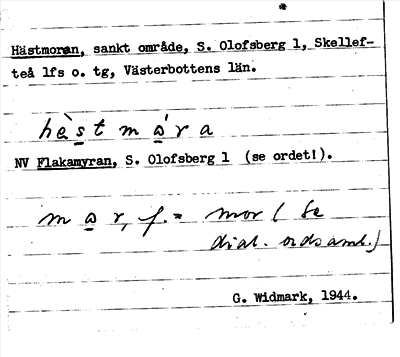 Hästmoran, sankt område, S. Olofsberg 1, Skellef-
teå lfs o. tg, Västerbottens län.
hè̱s̱t m á̱r a
NV Flakamyran, S. Olofsberg 1 (se ordet!).
m a̱ r, f. = mor ( Se
dial. ordsaml.)
G. Widmark, 1944.